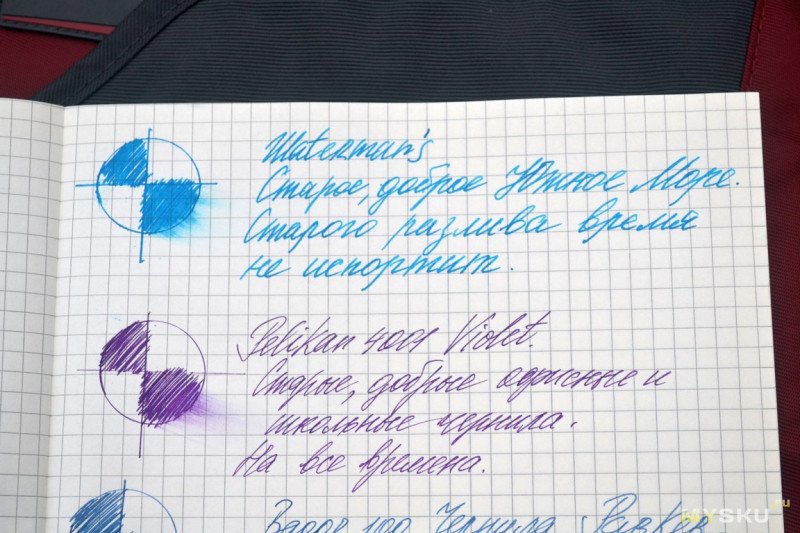 Waterman's
Старое, доброе Южное Море.
Старого разлива время
не испортит.
Pelikan 4001 Violet.
Старые, добрые офисные и
школьные чернила.
На все времена.
Чернила
MYSKU.ru